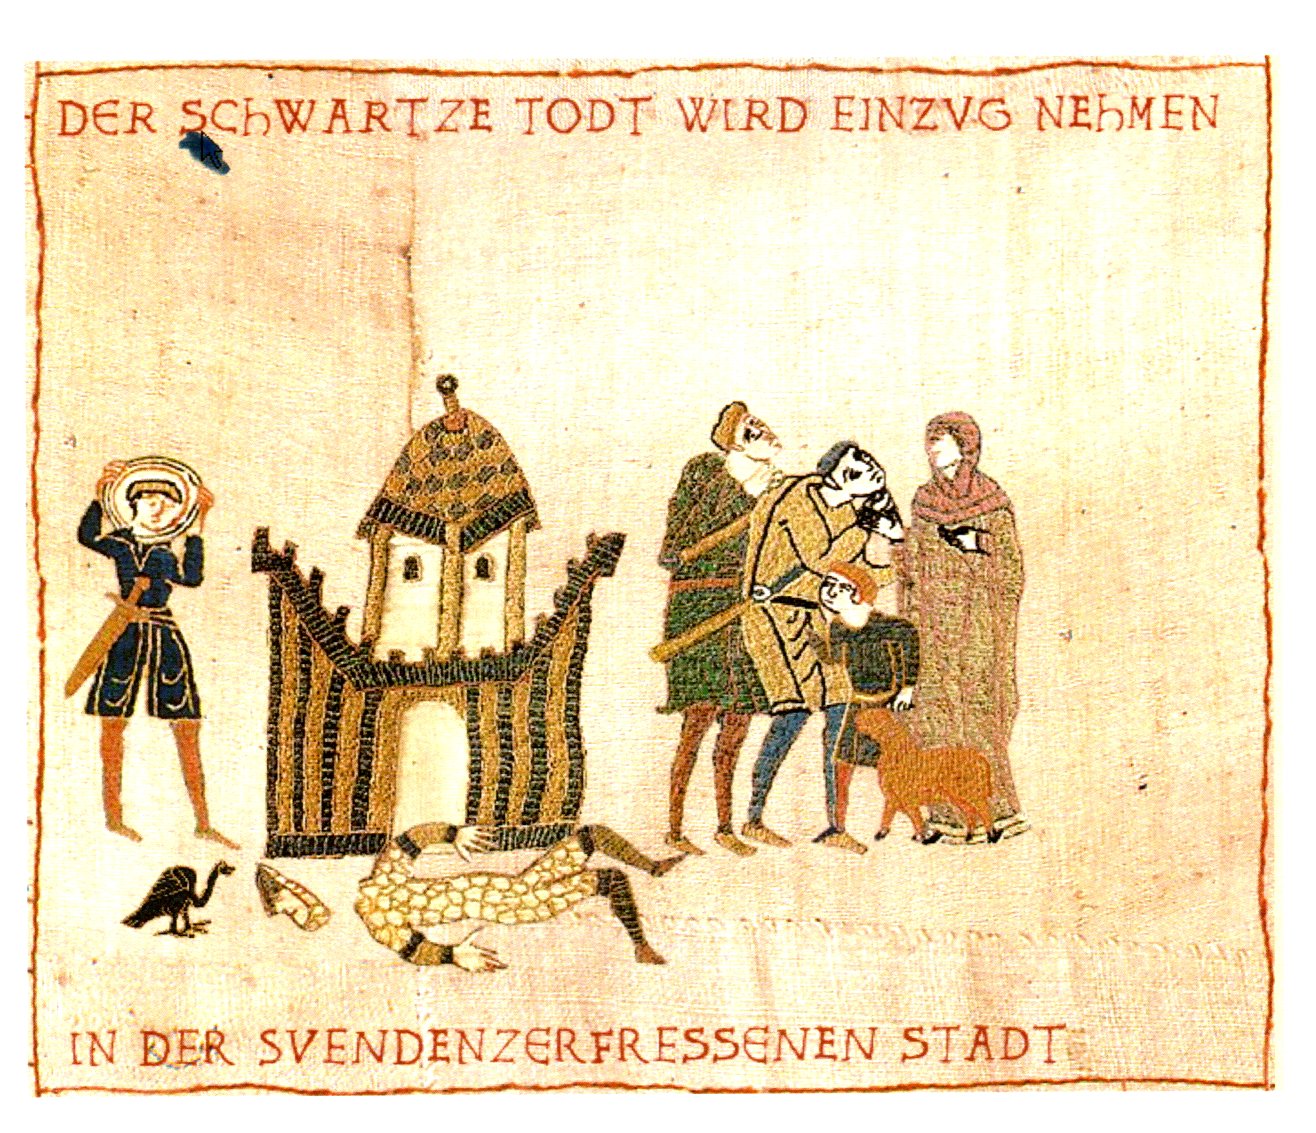 DER SCHWARTZE TODT WIRD EINZVG NEHMEN
IN DER SVENDENZERFRESSENEN STADT